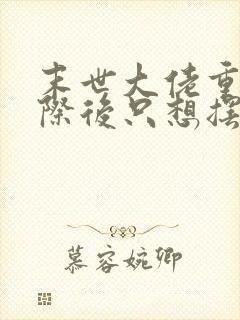 末世大佬重
際後只想擺
慕容婉卿